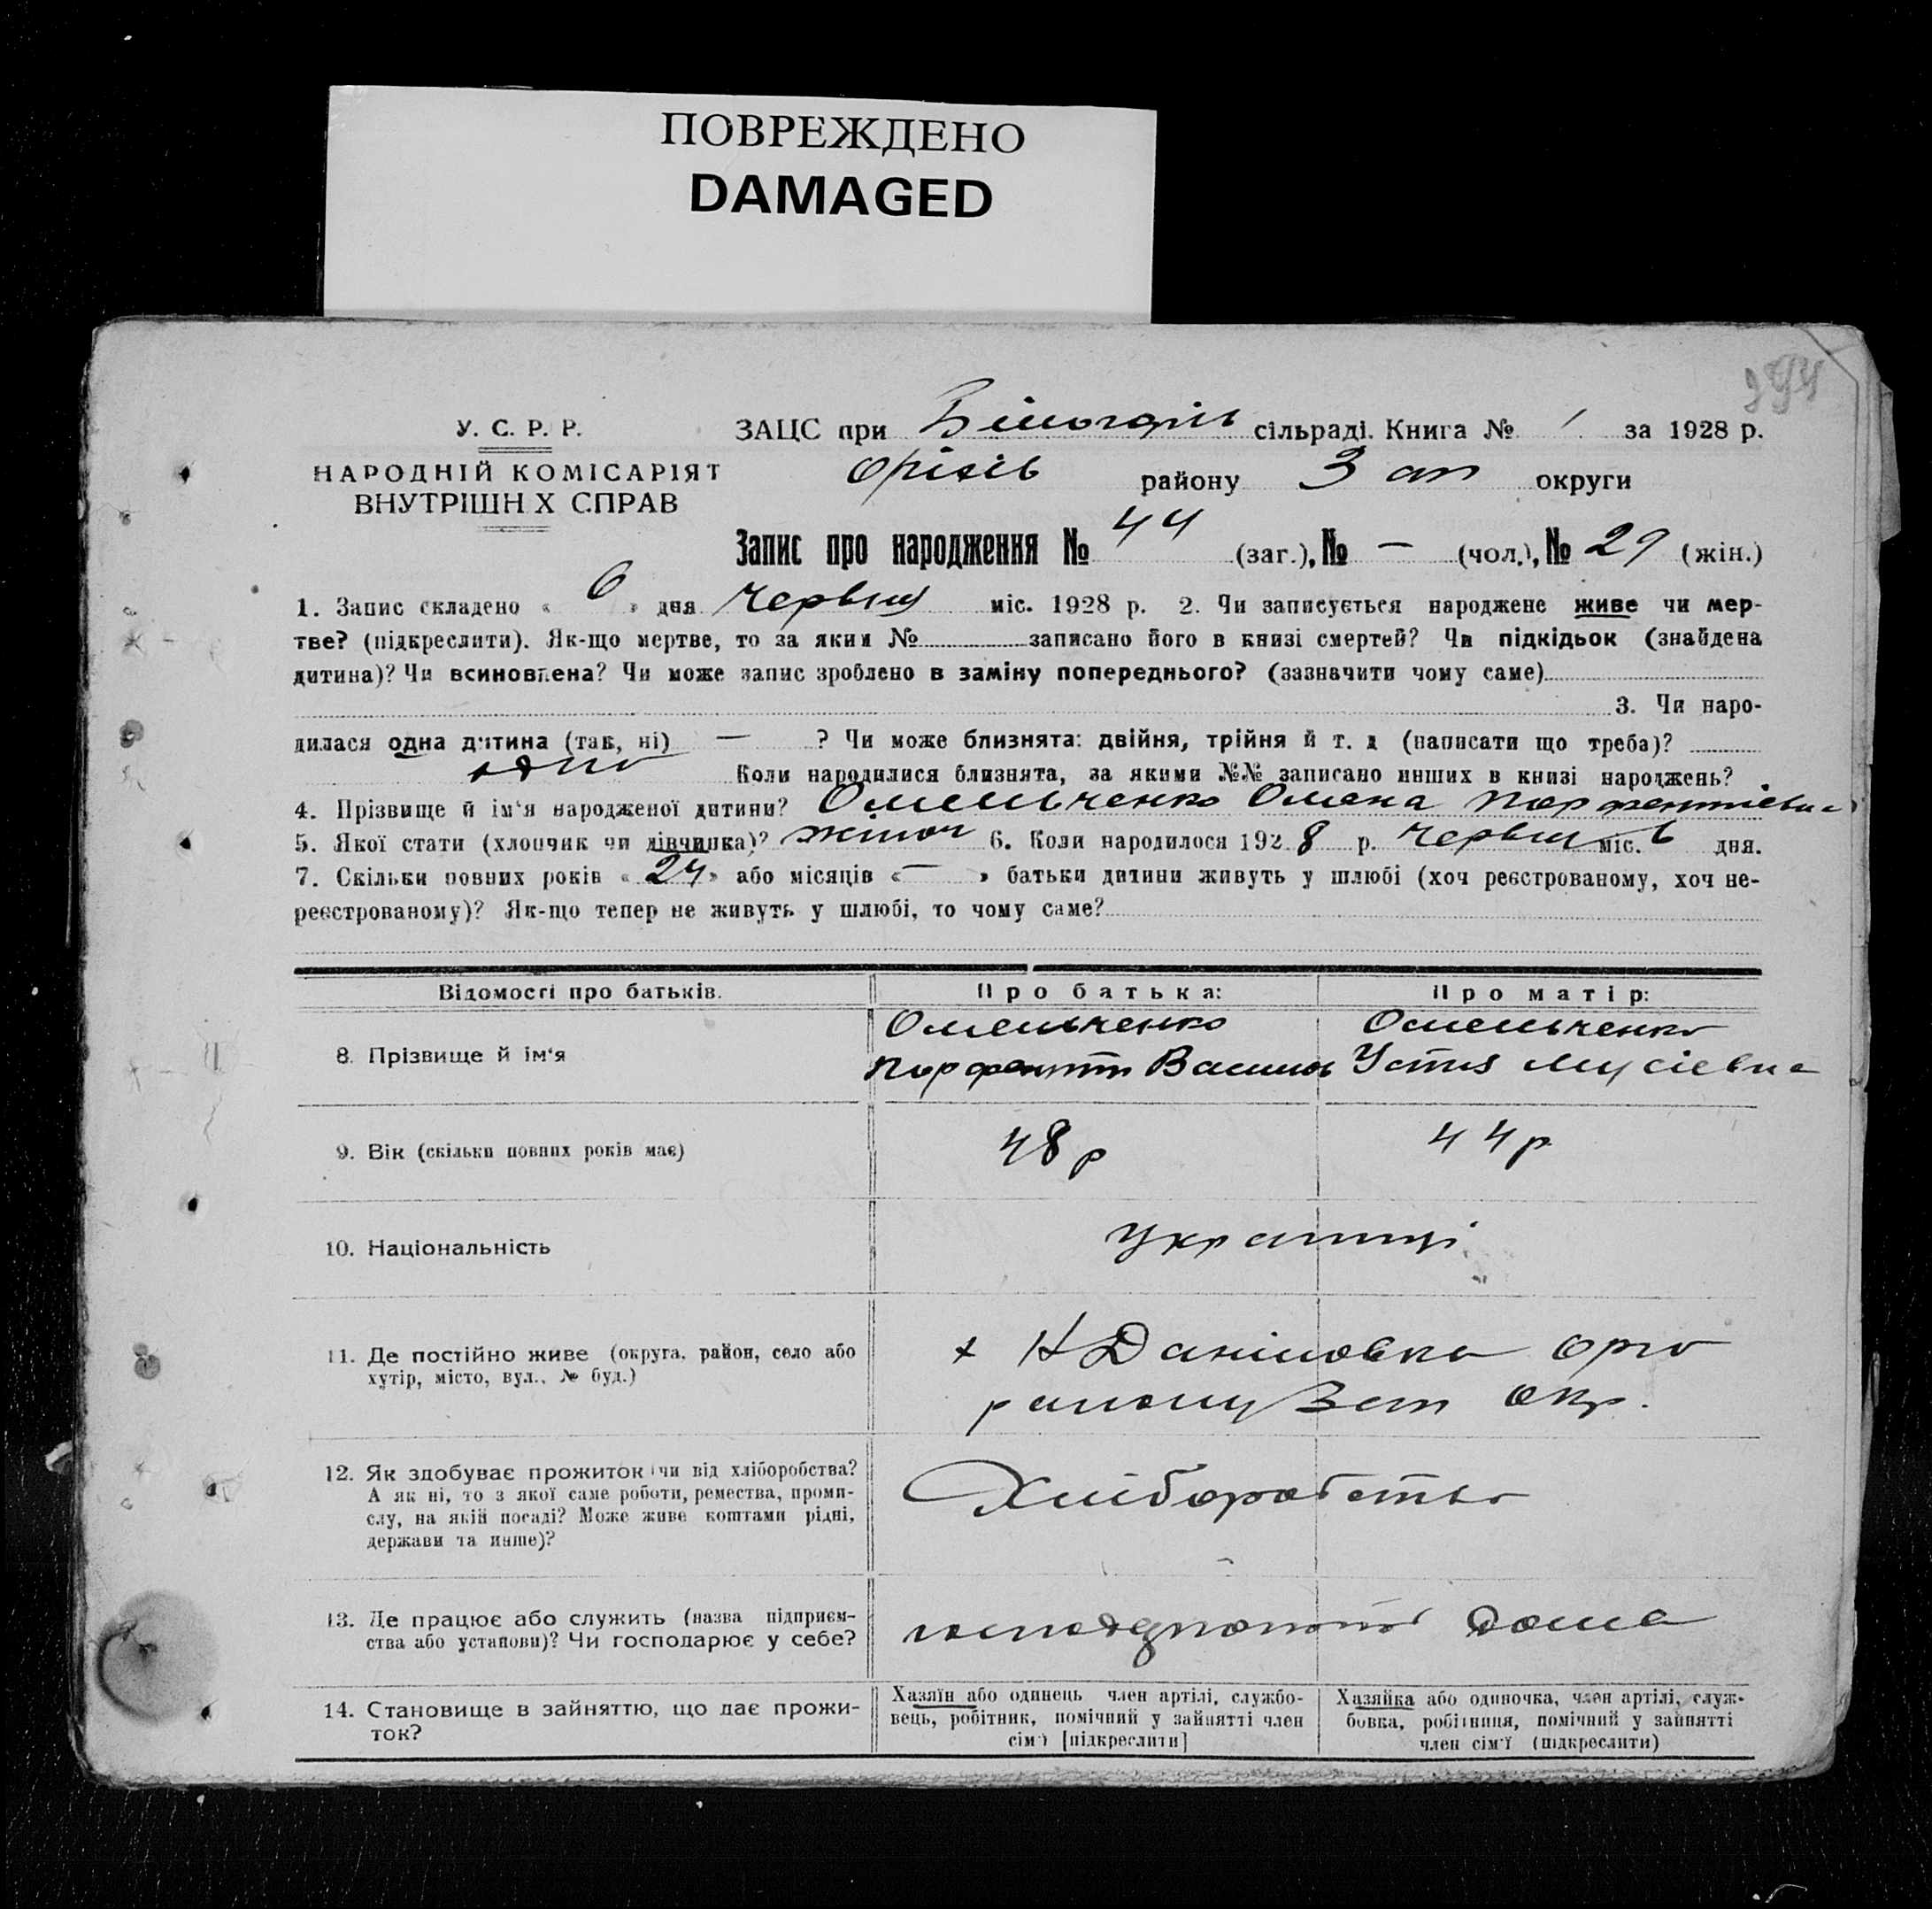 ПОВРЕЖДЕНО
DAMAGED
994
У. С. Р. Р.
НАРОДНІЙ КОМІСАРІЯТ
ВНУТРІШН Х СПРАВ
ЗАЦС при Білогорів сільраді. Книга № 1 за 1928 р.
Оріхів району Зап округи
Запис про народження № 44 (заг.), № — (чол.), № 29 (жін.)
1. Запис складено « 6 » дня червня міс. 1928 р. 2. Чи записується народжене живе чи мер-
тве? (підкреслити). Як-що мертве, то за яким № записано його в книзі смертей? Чи підкідьок (знайдена
дитина)? Чи всиновлена? Чи може запис зроблено в заміну попереднього? (зазначити чому саме)
3. Чи наро-
дилася одна дитина (так, ні) — ? Чи може близнята: двійня, трійня й т. д (написати що треба)?
одно Коли народилися близнята, за якими №№ записано инших в книзі народжень?
4. Прізвище й ім'я народженої дитини? Омельченко Олена Порфентіевна
5. Якої стати (хлопчик чи дівчинка)? жіноч 6. Коли народилося 1928 р. червня міс. 6 дня.
7. Скільки повних років « 24 » або місяців « — » батьки дитини живуть у шлюбі (хоч реєстрованому, хоч не-
реєстрованому)? Як-що тепер не живуть у шлюбі, то чому саме?
Відомості про батьків. Про батька: Про матір:
8. Прізвище й ім'я Омельченко Порфентій Васильов Омельченко Устия Мусіевна
9. Вік (скільки повних років має) 48 р 44 р
10. Національність Українці
11. Де постійно живе (округа, район, село або
хутір, місто, вул., № буд.) х Н Даніловка Оріо
району Зап окр.
12. Як здобуває прожиток чи від хліборобства?
А як ні, то з якої саме роботи, ремества, проми-
слу, на якій посаді? Може живе коштами рідні,
держави та инше)?
Хліборобство
13. Де працює або служить (назва підприєм-
ства або установи)? Чи господарює у себе?
дома
14. Становище в зайняттю, що дає прожи-
ток?
Хазяїн або одинець член артілі, службо-
вець, робітник, помічний у зайнятті член
сім'ї [підкреслити]
Хазяйка або одиночка, член артілі, служ-
бовка, робітниця, помічний у зайнятті
член сім'ї (підкреслити)